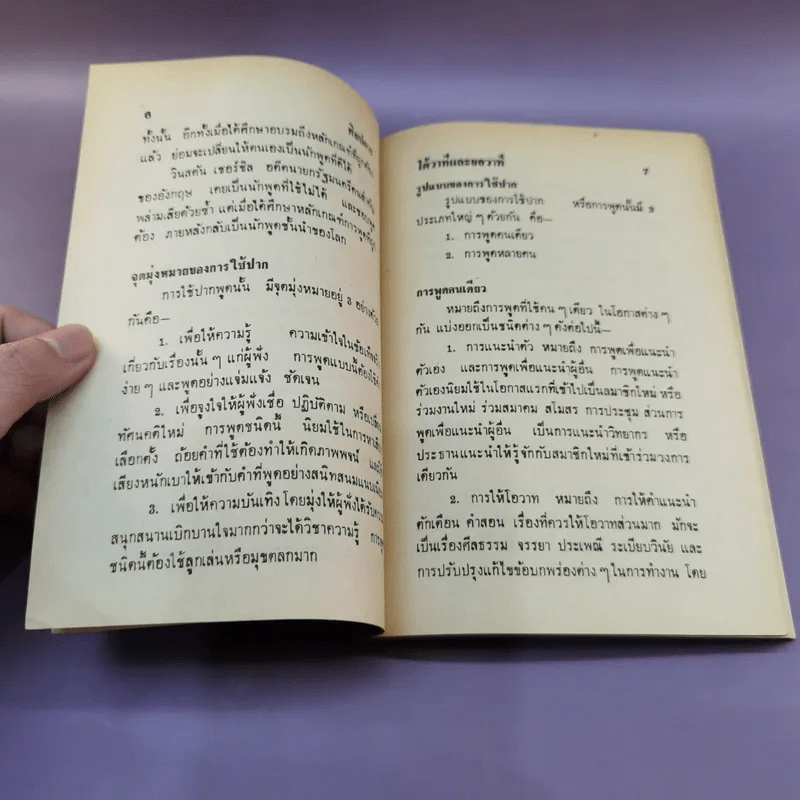 ๖
ทั้งนั้น อีกทั้งเมื่อได้ศึกษาอบรมถึงหลักเกณฑ์
แล้ว ย่อมจะเปลี่ยนให้ตนเองเป็นนักพูดที่ดีได้
วินสตัน เชอร์ชิล อดีตนายกรัฐมนตรี
ของอังกฤษ เคยเป็นนักพูดที่ใช้ไม่ได้ และ
พล่ามเสียด้วยซ้ำ แต่เมื่อได้ศึกษาหลักเกณฑ์การพูดที่
ต้อง ภายหลังกลับเป็นนักพูดชั้นนำของโลก
จุดมุ่งหมายของการใช้ปาก
การใช้ปากพูดนั้น มีจุดมุ่งหมายอยู่ 3 อย่างด้วย
กันคือ—
1. เพื่อให้ความรู้ ความเข้าใจในข้อเท็จจริง
เกี่ยวกับเรื่องนั้น ๆ แก่ผู้ฟัง การพูดแบบนี้ต้องใช้
ง่าย ๆ และพูดอย่างแจ่มแจ้ง ชัดเจน
2. เพื่อจูงใจให้ผู้ฟังเชื่อ ปฏิบัติตาม หรือ
ทัศนคติใหม่ การพูดชนิดนี้ นิยมใช้ในการ
เลือกตั้ง ถ้อยคำที่ใช้ต้องทำให้เกิดภาพพจน์
เสียงหนักเบาให้เข้ากับคำที่พูดอย่างสนิทสนม
3. เพื่อให้ความบันเทิง โดยมุ่งให้ผู้ฟังได้รับความ
สนุกสนานเบิกบานใจมากกว่าจะได้วิชาความรู้ การ
ชนิดนี้ต้องใช้ลูกเล่นหรือมุขตลกมาก
โต้วาทีและยอวาที 7
รูปแบบของการใช้ปาก
รูปแบบของการใช้ปาก หรือการพูดนั้นมี 2
ประเภทใหญ่ ๆ ด้วยกัน คือ—
1. การพูดคนเดียว
2. การพูดหลายคน
การพูดคนเดียว
หมายถึงการพูดที่ใช้คน ๆ เดียว ในโอกาสต่าง ๆ
กัน แบ่งออกเป็นชนิดต่าง ๆ ดังต่อไปนี้—
1. การแนะนำตัว หมายถึง การพูดเพื่อแนะนำ
ตัวเอง และการพูดเพื่อแนะนำผู้อื่น การพูดแนะนำ
ตัวเองนิยมใช้ในโอกาสแรกที่เข้าไปเป็นสมาชิกใหม่ หรือ
ร่วมงานใหม่ ร่วมสมาคม สโมสร การประชุม ส่วนการ
พูดเพื่อแนะนำผู้อื่น เป็นการแนะนำวิทยากร หรือ
ประธานแนะนำให้รู้จักกับสมาชิกใหม่ที่เข้าร่วมวงการ
เดียวกัน
2. การให้โอวาท หมายถึง การให้คำแนะนำ
ตักเตือน คำสอน เรื่องที่ควรให้โอวาทส่วนมาก มักจะ
เป็นเรื่องศีลธรรม จรรยา ประเพณี ระเบียบวินัย และ
การปรับปรุงแก้ไขข้อบกพร่องต่าง ๆ ในการทำงาน โดย